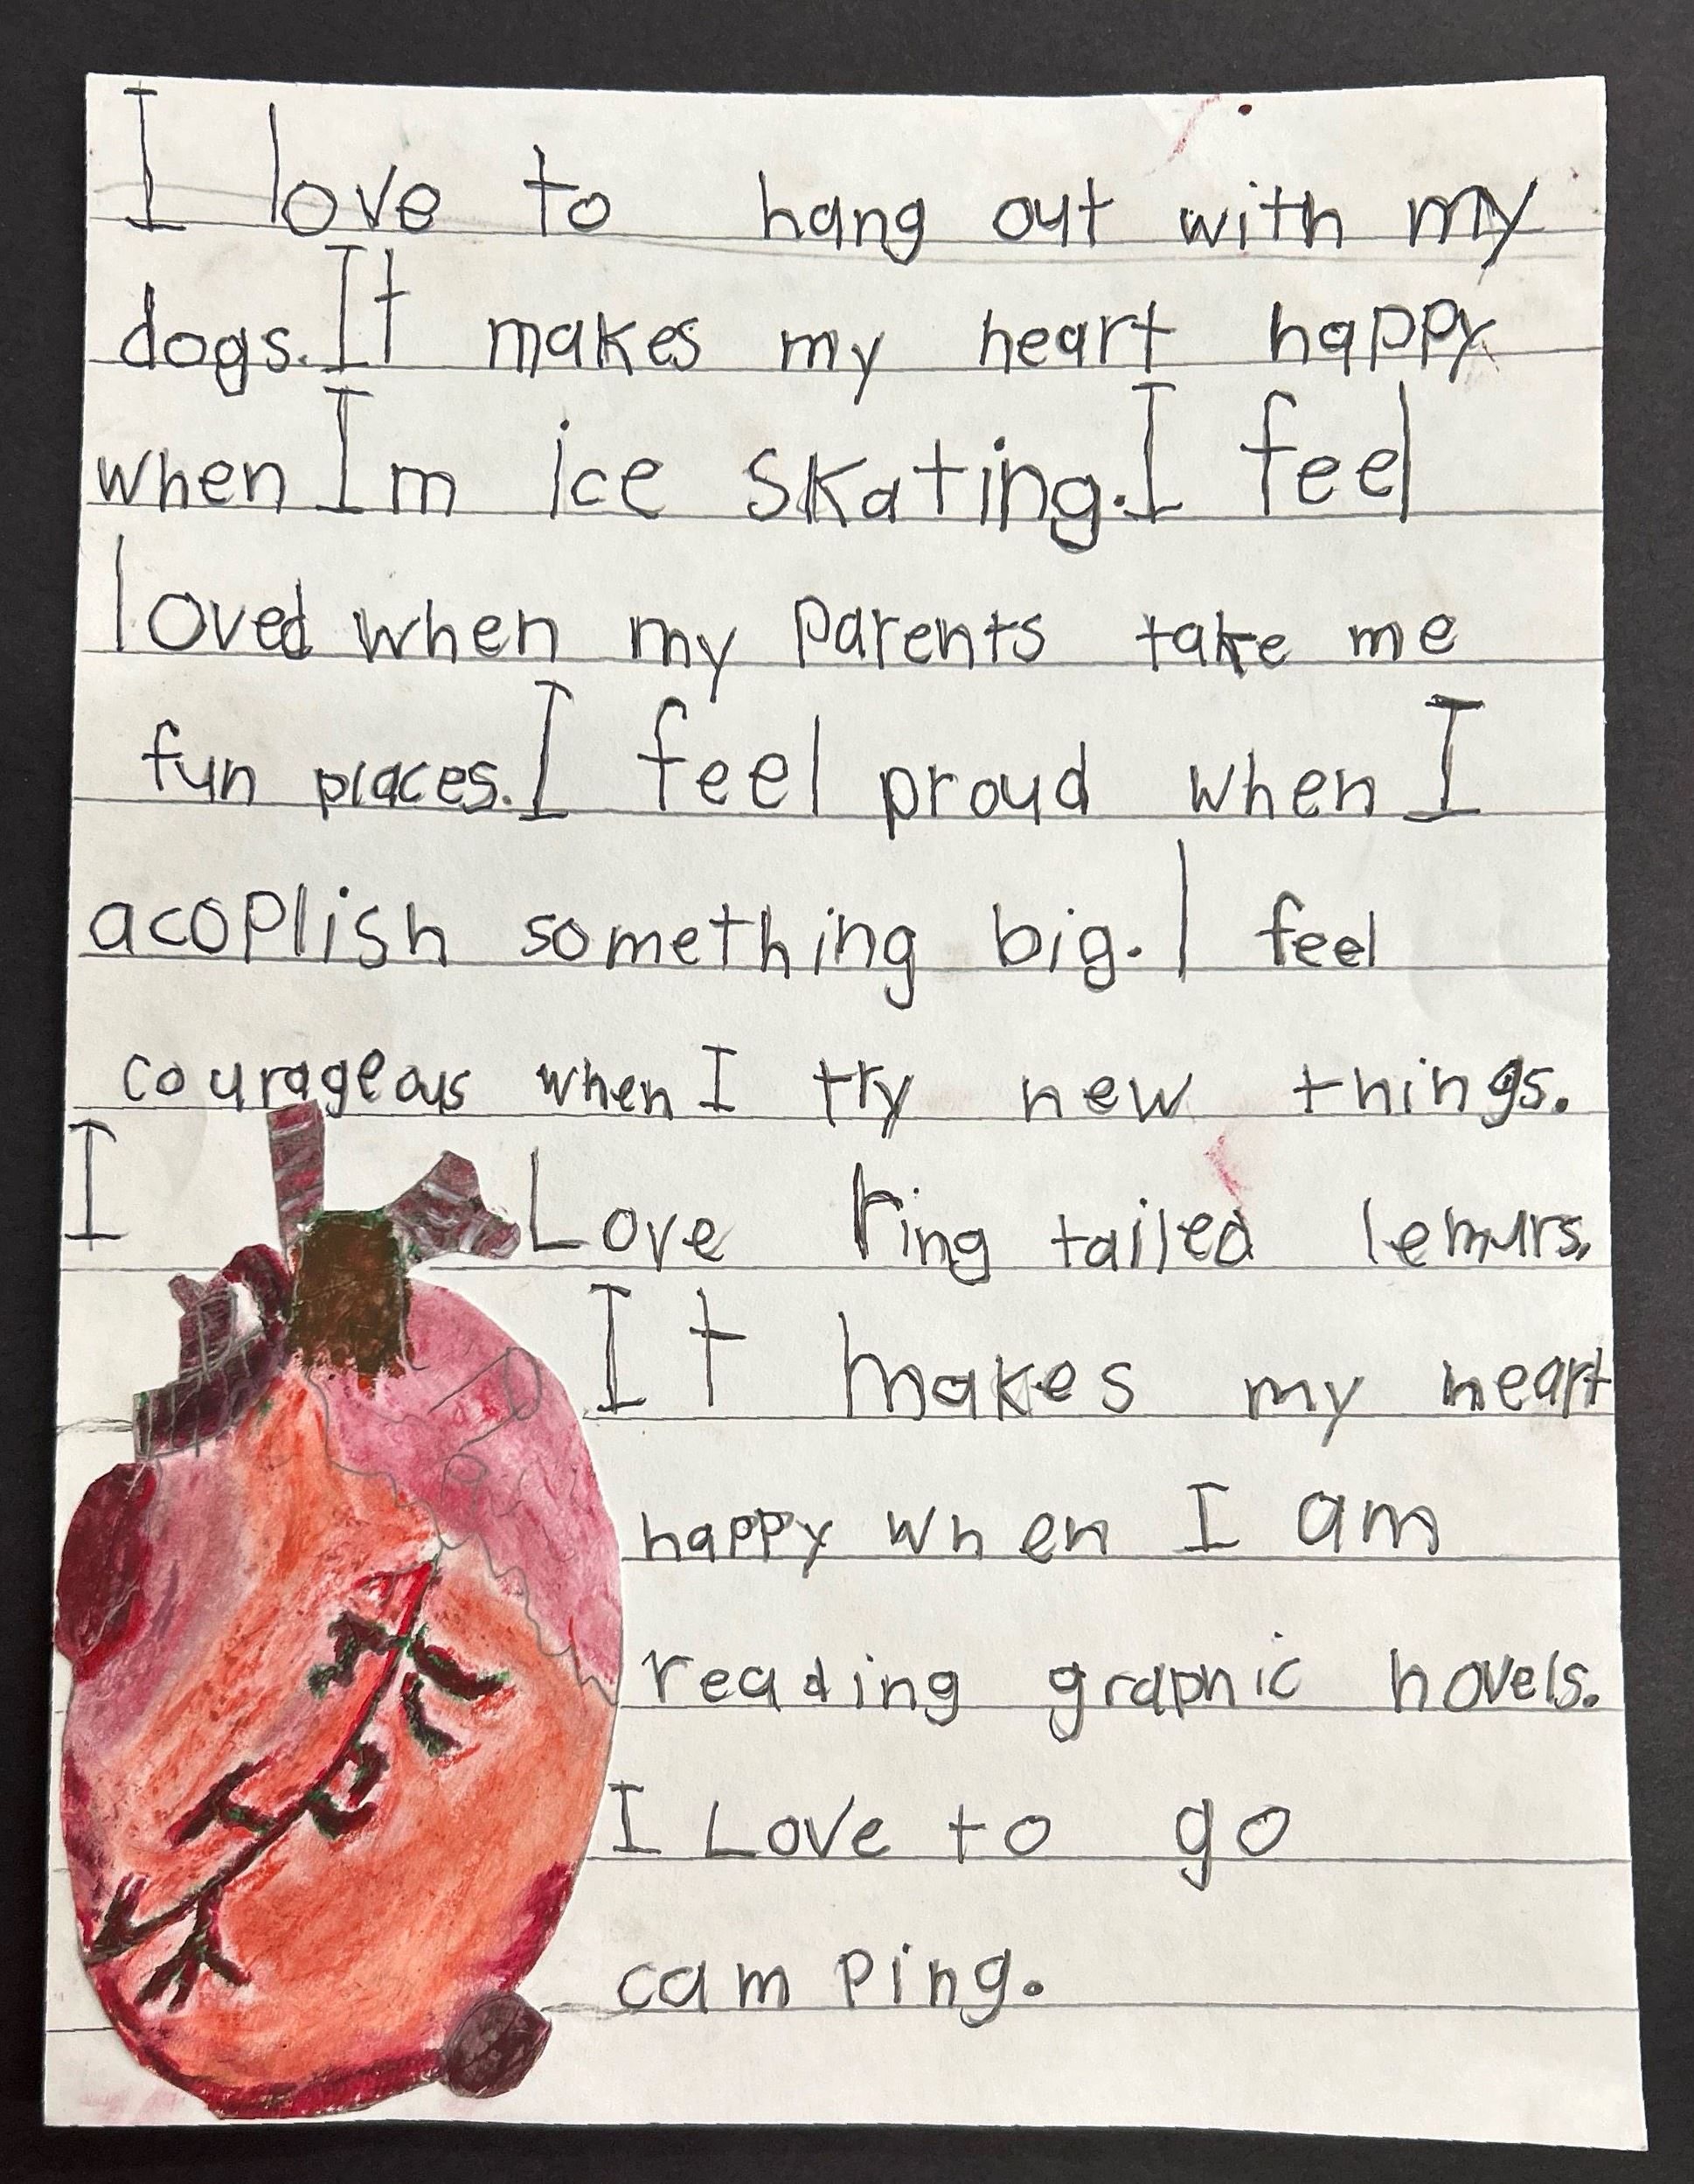 I love to hang out with my
dogs. It makes my heart happy
when Im ice skating. I feel
loved when my parents take me
fun places. I feel proud when I
acoplish something big. I feel
courageous when I try new things.
I Love ring tailed lemurs.
It makes my heart
happy when I am
reading graphic novels.
I Love to go
camping.